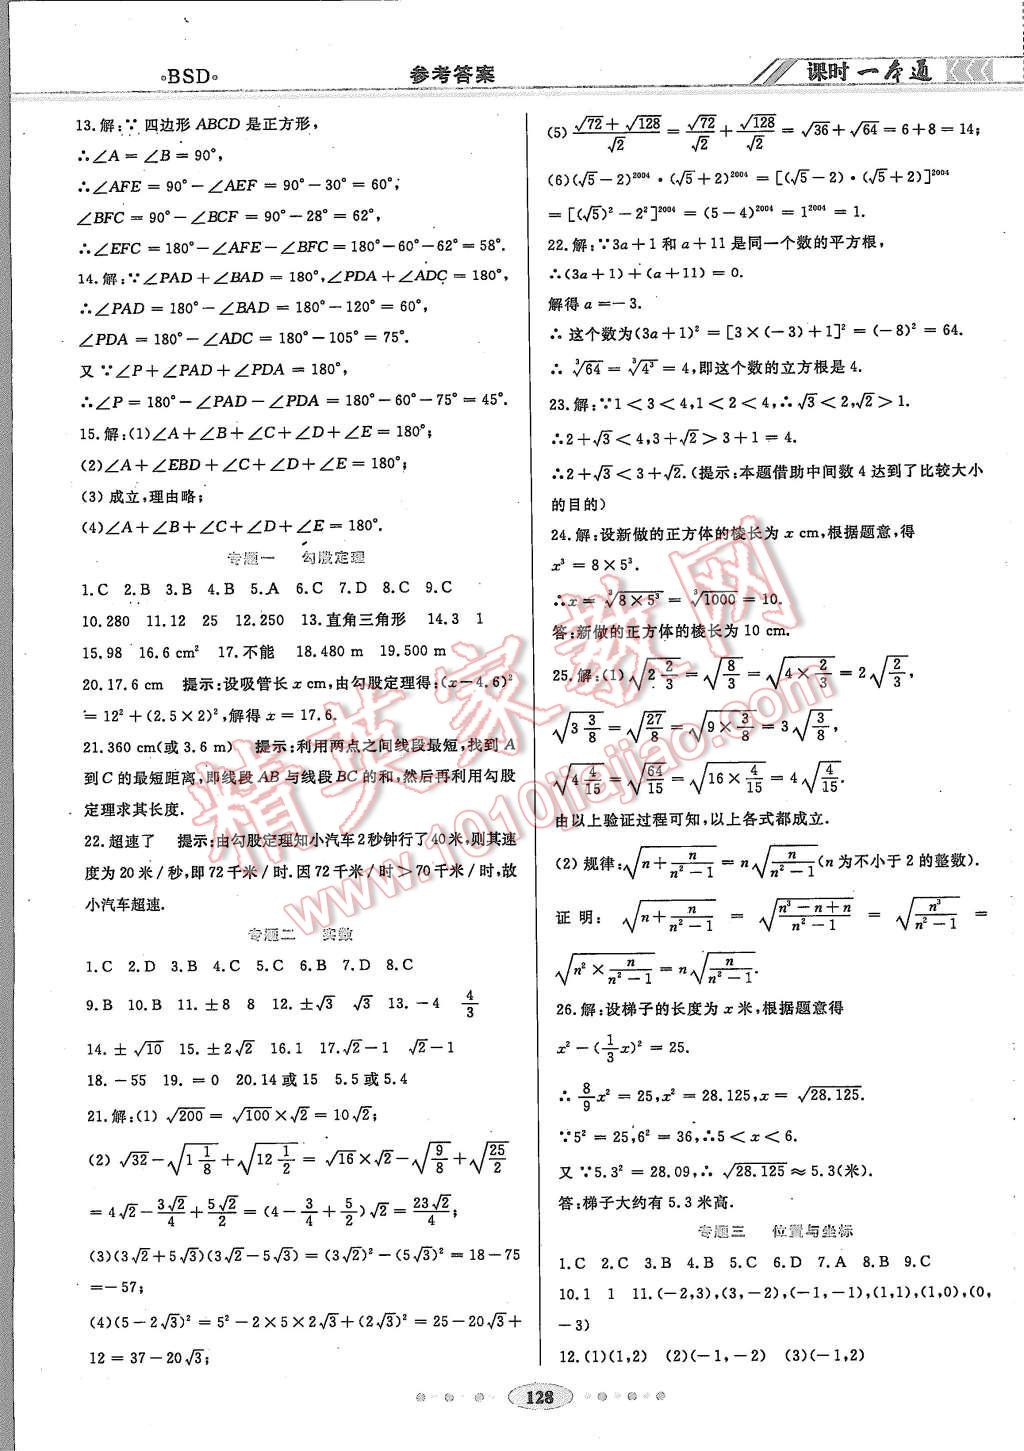 ◦BSD◦
参考答案
课时一本通
13.解:∵四边形ABCD是正方形,
∴∠A=∠B=90°,
∴∠AFE=90°-∠AEF=90°-30°=60°,
∠BFC=90°-∠BCF=90°-28°=62°,
∴∠EFC=180°-∠AFE-∠BFC=180°-60°-62°=58°.
14.解:∵∠PAD+∠BAD=180°,∠PDA+∠ADC=180°,
∴∠PAD=180°-∠BAD=180°-120°=60°,
∠PDA=180°-∠ADC=180°-105°=75°.
又∵∠P+∠PAD+∠PDA=180°,
∴∠P=180°-∠PAD-∠PDA=180°-60°-75°=45°.
15.解:(1)∠A+∠B+∠C+∠D+∠E=180°;
(2)∠A+∠EBD+∠C+∠D+∠E=180°;
(3)成立,理由略;
(4)∠A+∠B+∠C+∠D+∠E=180°.
专题一 勾股定理
1.C 2.B 3.B 4.B 5.A 6.C 7.D 8.C 9.C
10.280 11.12 25 12.250 13.直角三角形 14.3 1
15.98 16.6 cm² 17.不能 18.480 m 19.500 m
20.17.6 cm 提示:设吸管长x cm,由勾股定理得:(x-4.6)²
=12²+(2.5×2)²,解得x=17.6.
21.360 cm(或3.6 m) 提示:利用两点之间线段最短,找到A
到C的最短距离,即线段AB与线段BC的和,然后再利用勾股
定理求其长度.
22.超速了 提示:由勾股定理知小汽车2秒钟行了40米,则其速
度为20米/秒,即72千米/时.因72千米/时>70千米/时,故
小汽车超速.
专题二 实数
1.C 2.D 3.B 4.C 5.C 6.B 7.D 8.C
9.B 10.B 11.±8 8 12.±√3 √3 13.-4 4/3
14.±√10 15.±2√2 16.1 17.√2-1 √2-1
18.-55 19.=0 20.14或15 5.5或5.4
21.解:(1)√200=√100×√2=10√2;
(2)√32-√(1 1/8)+√(12 1/2)=√16×√2-√(9/8)+√(25/2)
=4√2-3√2/4+5√2/2=(4-3/4+5/2)√2=23√2/4;
(3)(3√2+5√3)(3√2-5√3)=(3√2)²-(5√3)²=18-75
=-57;
(4)(5-2√3)²=5²-2×5×2√3+(2√3)²=25-20√3+
12=37-20√3;
(5)(√72+√128)/√2=√72/√2+√128/√2=√36+√64=6+8=14;
(6)(√5-2)²⁰⁰⁴·(√5+2)²⁰⁰⁴=[(√5-2)·(√5+2)]²⁰⁰⁴
=[(√5)²-2²]²⁰⁰⁴=(5-4)²⁰⁰⁴=1²⁰⁰⁴=1.
22.解:∵3a+1和a+11是同一个数的平方根,
∴(3a+1)+(a+11)=0.
解得a=-3.
∴这个数为(3a+1)²=[3×(-3)+1]²=(-8)²=64.
∴∛64=∛4³=4,即这个数的立方根是4.
23.解:∵1<3<4,1<2<4,∴√3<2,√2>1.
∴2+√3<4,3+√2>3+1=4.
∴2+√3<3+√2.(提示:本题借助中间数4达到了比较大小
的目的)
24.解:设新做的正方体的棱长为x cm,根据题意,得
x³=8×5³.
∴x=∛(8×5³)=∛1000=10.
答:新做的正方体的棱长为10 cm.
25.解:(1)√(2 2/3)=√(8/3)=√(4×2/3)=2√(2/3),
√(3 3/8)=√(27/8)=√(9×3/8)=3√(3/8),
√(4 4/15)=√(64/15)=√(16×4/15)=4√(4/15).
由以上验证过程可知,以上各式都成立.
(2)规律:√(n+n/(n²-1))=n√(n/(n²-1))(n为不小于2的整数).
证明:√(n+n/(n²-1))=√((n³-n+n)/(n²-1))=√(n³/(n²-1))=
√(n²×n/(n²-1))=n√(n/(n²-1)).
26.解:设梯子的长度为x米,根据题意得
x²-(1/3x)²=25.
∴8/9x²=25,x²=28.125,x=√28.125.
∵5²=25,6²=36,∴5<x<6.
又∵5.3²=28.09,∴√28.125≈5.3(米).
答:梯子大约有5.3米高.
专题三 位置与坐标
1.C 2.B 3.B 4.B 5.C 6.D 7.A 8.B 9.C
10.1 1 11.(-2,3),(3,-2),(-1,-1),(1,1),(1,0),(0,
-3)
12.(1)(1,2) (2)(-1,-2) (3)(-1,2)
128
精英家教网
www.1010jiajiao.com